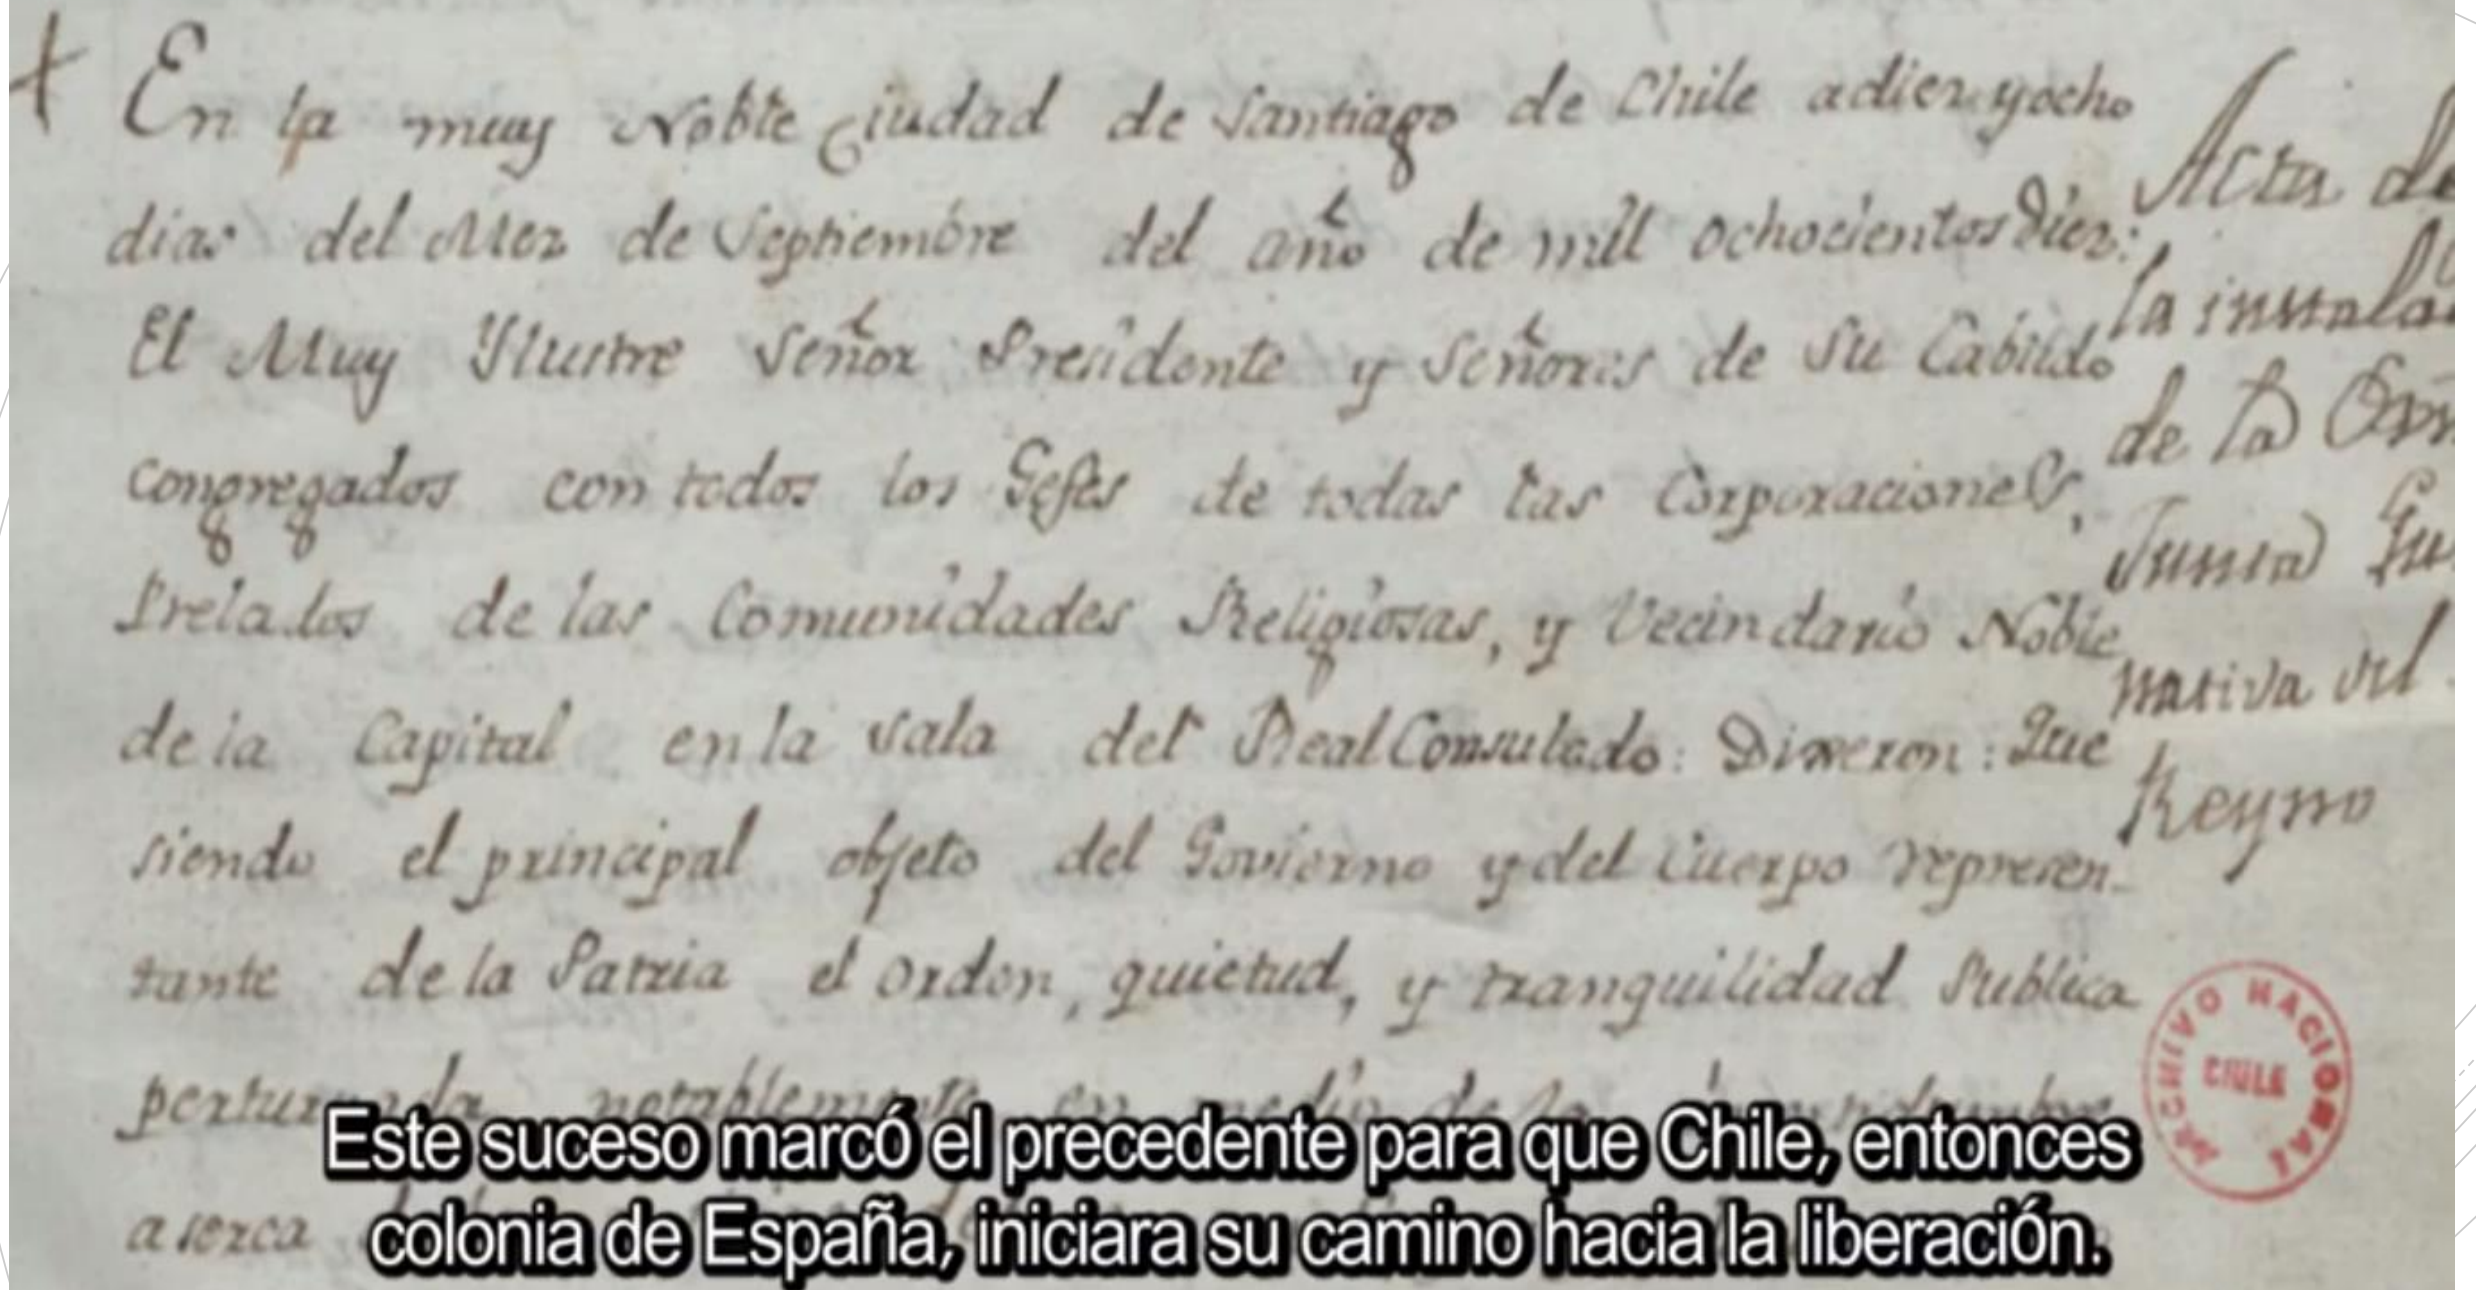 En la muy Noble Ciudad de Santiago de Chile adiez yocho
dias del Mez de Septiembre del año de mill ochocientos Diez:
El Muy Ylustre Señor Presidente y Señores de Su Cabildo
congregados con todos los Gefes de todas las Corporaciones,
Prelados de las Comunidades Religiosas, y Vecindario Noble
dela Capital enla sala del Real Consulado: Dixeron: Que
siendo el principal objeto del Govierno y del Cuerpo represen-
tante dela Patria el orden, quietud, y tranquilidad Publica
perturbada notablemente en medio de la
aserca
Acta de
la instala
de la
Junta Gu
nativa del
Reyno
ARCHIVO NACIONAL
CHILE
Este suceso marcó el precedente para que Chile, entonces
colonia de España, iniciara su camino hacia la liberación.